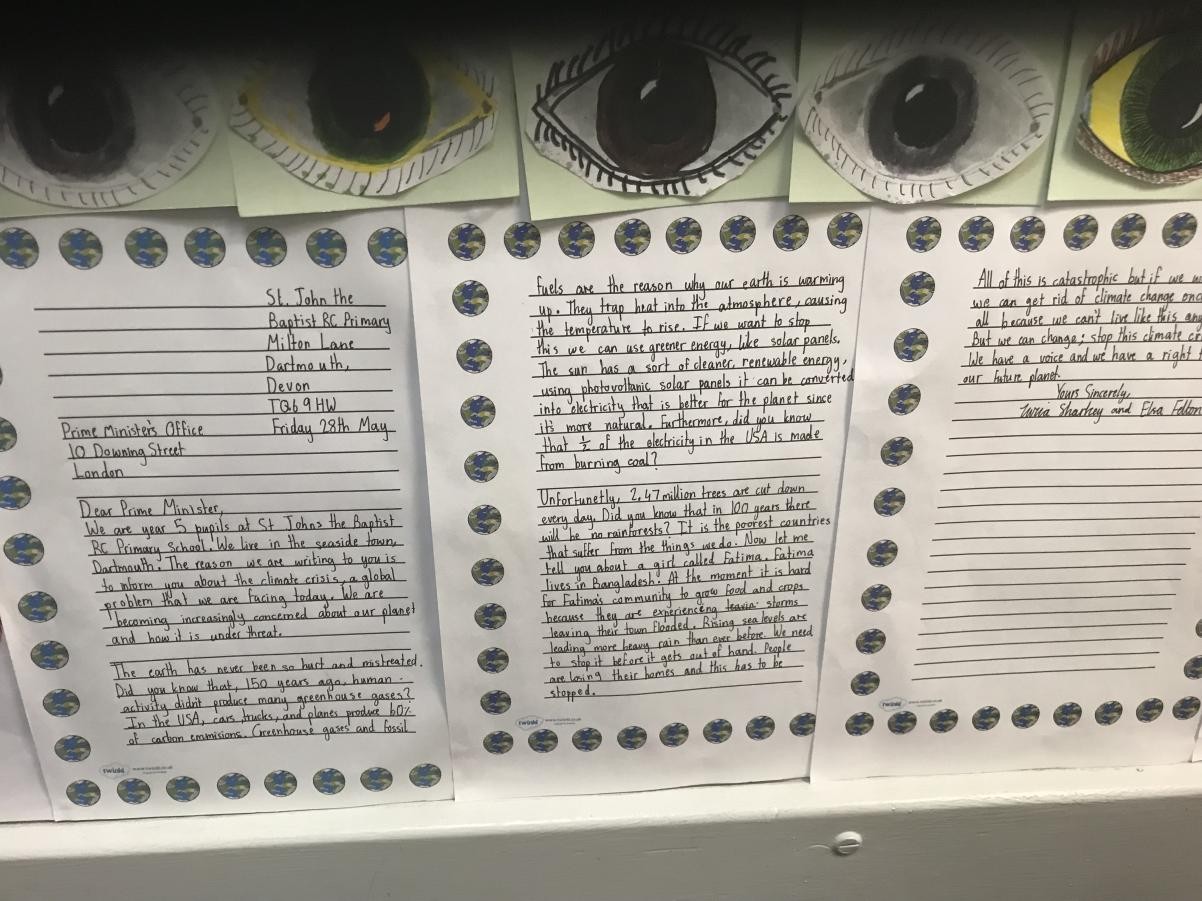 St. John the
Baptist RC Primary
Milton Lane
Dartmouth,
Devon
TQ6 9HW
Prime Minister's Office Friday 28th May
10 Downing Street
London
Dear Prime Minister,
We are year 5 pupils at St Johns the Baptist
RC Primary School. We live in the seaside town,
Dartmouth. The reason we are writing to you is
to inform you about the climate crisis, a global
problem that we are facing today. We are
becoming increasingly concerned about our planet
and how it is under threat.
The earth has never been so hurt and mistreated.
Did you know that, 150 years ago, human
activity didn't produce many greenhouse gases?
In the USA, cars, trucks, and planes produce 60%
of carbon emmisions. Greenhouse gases and fossil
twinkl www.twinkl.co.uk
fuels are the reason why our earth is warming
up. They trap heat into the atmosphere, causing
the temperature to rise. If we want to stop
this we can use greener energy, like solar panels.
The sun has a sort of cleaner, renewable energy,
using photovoltanic solar panels it can be converted
into electricity that is better for the planet since
it's more natural. Furthermore, did you know
that ½ of the electricity in the USA is made
from burning coal?
Unfortunetly, 2.47 million trees are cut down
every day. Did you know that in 100 years there
will be no rainforests? It is the poorest countries
that suffer from the things we do. Now let me
tell you about a girl called Fatima. Fatima
lives in Bangladesh. At the moment it is hard
for Fatima's community to grow food and crops
because they are experiencing storms
leaving their town flooded. Rising sea levels are
leading more heavy rain than ever before. We need
to stop it before it gets out of hand. People
are losing their homes and this has to be
stopped.
twinkl www.twinkl.co.uk
All of this is catastrophic but if we
we can get rid of climate change
all because we can't live like this
But we can change; stop this climate
We have a voice and we have a right
our future planet.
Yours Sincerely,
Sharkey and Elsa
twinkl www.twinkl.co.uk